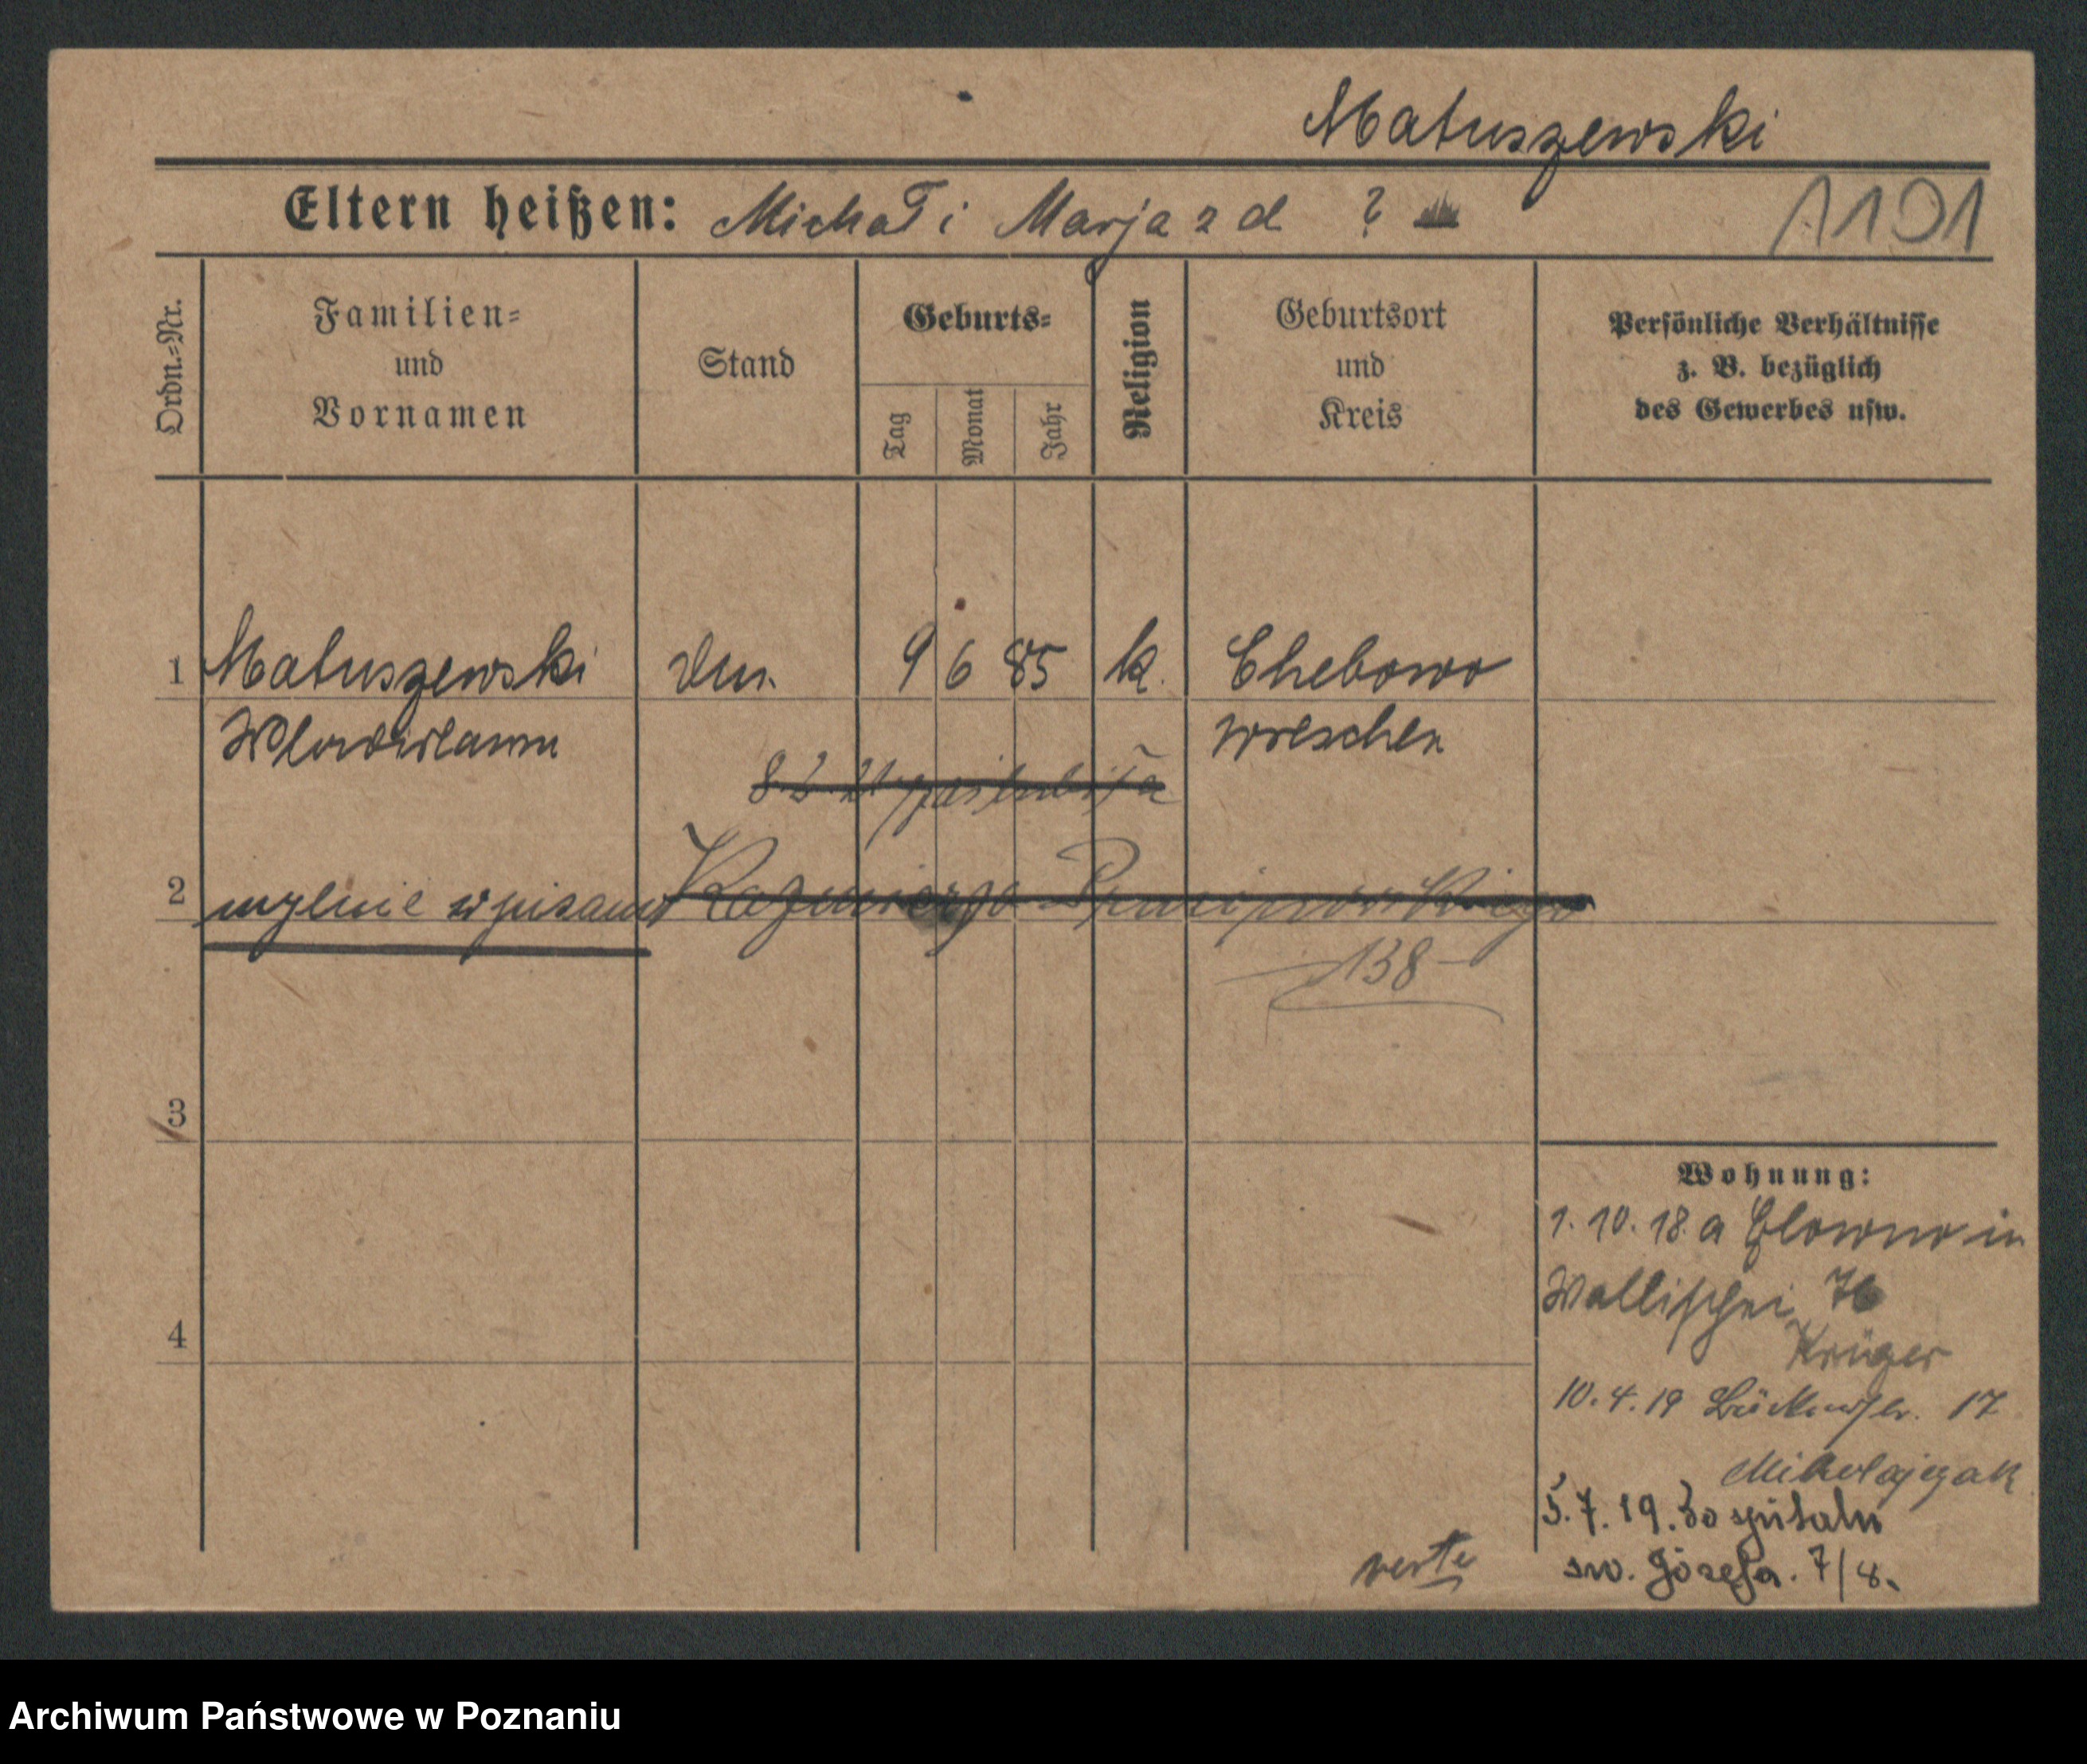 Matuszewski
Eltern heißen: Michał i Marja z d ?
1191
Ordn.=Nr.
Familien=
und
Vornamen
Stand
Geburts=
Tag
Monat
Jahr
Religion
Geburtsort
und
Kreis
Persönliche Verhältnisse
z. B. bezüglich
des Gewerbes usw.
1 Matuszewski 9 6 85 k. Chebowo
Wreschen
8. 2. 21 poślubił
2 mylnie wpisano Kazmierza
138
3
4
Wohnung:
1. 10. 18 a Glowno in
Wallischei 76
Krüger
10. 4. 19 17
Mikołajczak
5. 7. 19. Do szpitalu
św. Józefa. 7/8.
verte
Archiwum Państwowe w Poznaniu